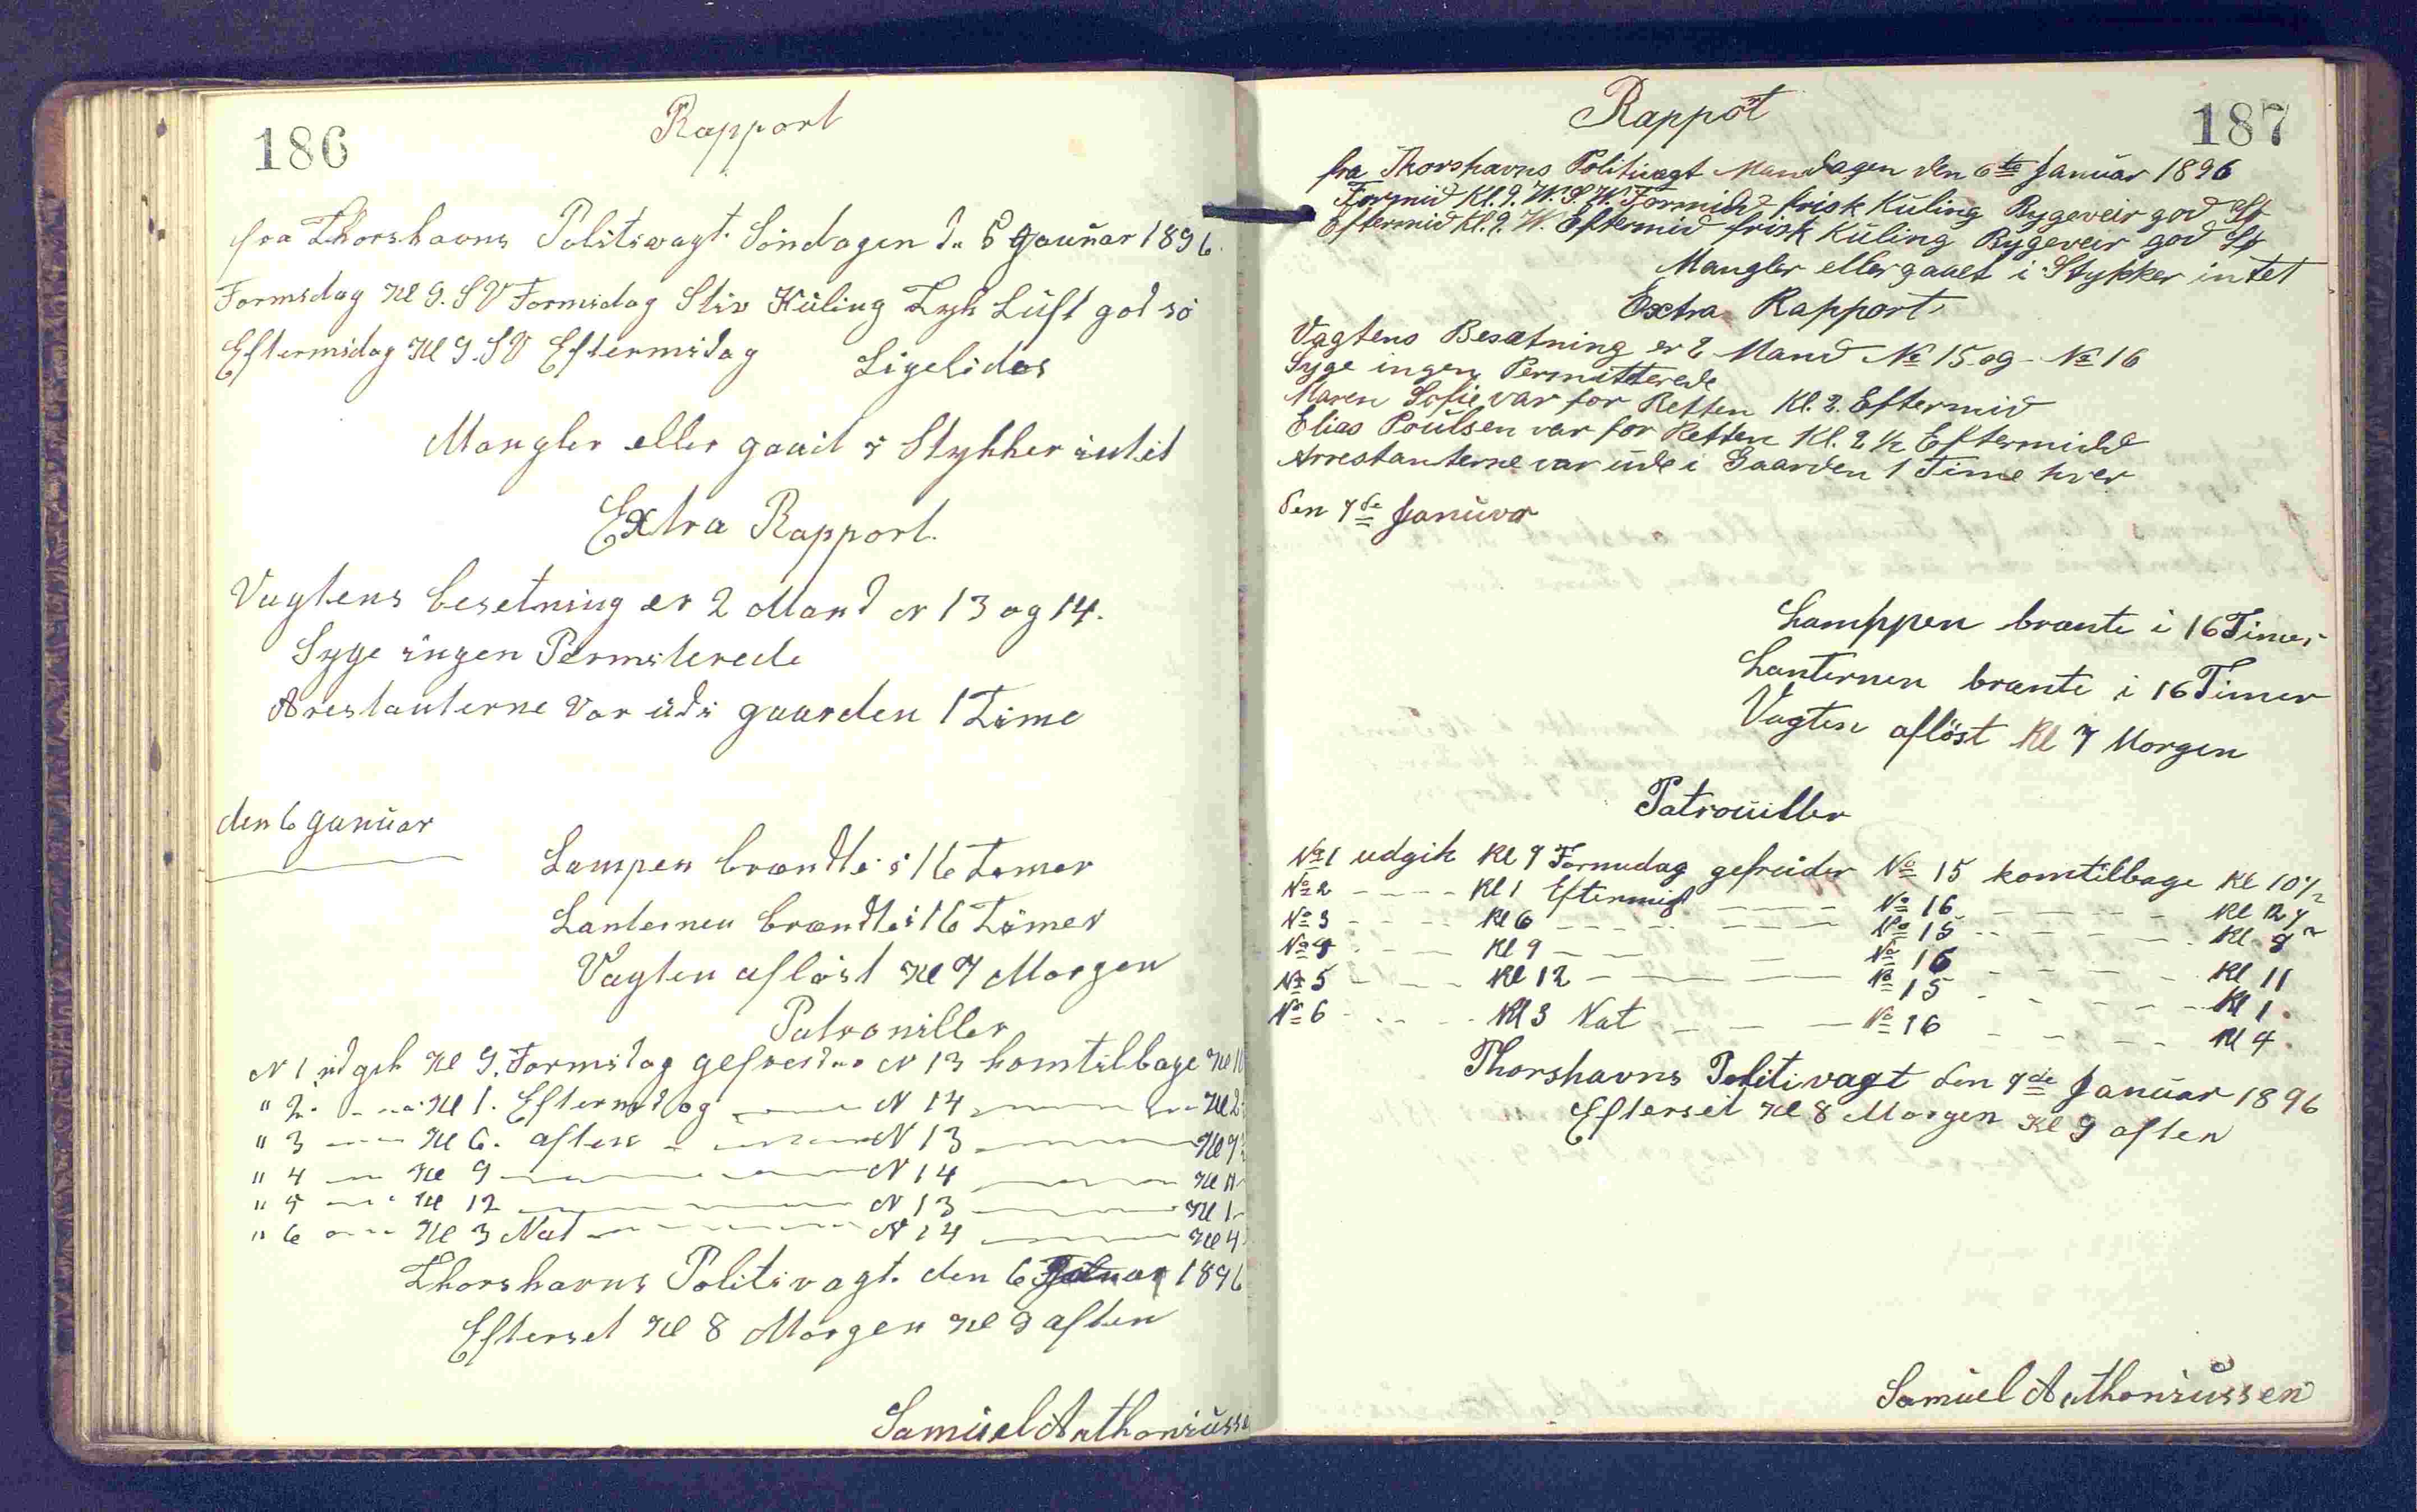 186
Rapport
fra Thorshavns Politivagt. Söndagen d. 5 Januar 1896.
Formidag Kl 9. SV Formidag Stiv Küling Tyk Lüft god sö
Eftermidag Kl 9. SV Eftermidag Ligelides
Mangler eller gaait i Stykker intet
Extra Rapport.
Vagtens besetning er 2 Mand N 13 og 14.
Syge ingen Permiterede
Arestanterne var üdi gaarden 1 Time
den 6 Januar
Lampen brændte i 16 Timer
Lanternen brændte i 16 Timer
Vagten aflöst Kl 7 Morgen
Patroniller
N 1 üdgik Kl 9. Formidag gefreider N 13 komtilbage Kl
" 2. Kl 1. Eftermidag N 14 Kl 2
" 3 Kl 6. aften N 13 Kl
" 4 Kl 9 N 14 Kl 11
" 5 Kl 12 N 13 Kl 1
" 6 Kl 3 Nat N 14 Kl 4
Thorshavns Politivagt. den 6 1896
Efterset Kl 8 Morgen Kl 9 aften
Samüel Anthoniüsse
187
Rappot
fra Thorshavns Politivagt Mandagen den 6te Januar 1896
Formid Kl. 9. W.S.W. Formidd frisk Küling Bygeveir god Sö
Eftermid Kl. 9. W. Eftermid frisk Küling Bygeveir god Sö
Mangler eller gaaet i Stykker intet
Extra Rapport
Vagtens Besætning er 2 Mand No 15 og No 16
Syge ingen Permitterede
Maren Sofie var for Retten Kl. 2. Eftermid
Elias Poülsen var for Retten Kl. 2 1/2 Eftermidd
Arrestanterne var üde i Gaarden 1 Time hver
den 7de Janüar
Lamppen brænte i 16 Timer
Lanternen brænte i 16 Timer
Vagten aflöst Kl 7 Morgen
Patrouiller
No 1 udgik Kl 9 Formidag gefreider No 15 komtilbage Kl 10 1/2
No 2 Kl 1 Eftermid No 16 Kl
No 3 Kl 6 No 15 Kl
No 4 Kl 9 No 16 Kl 11
No 5 Kl 12 No 15 Kl 1.
No 6 Kl 3 Nat No 16 Kl 4.
Thorshavns Politivagt den 7de Janüar 1896
Efterset Kl 8 Morgen Kl 9 aften
Samüel Anthoniüssen